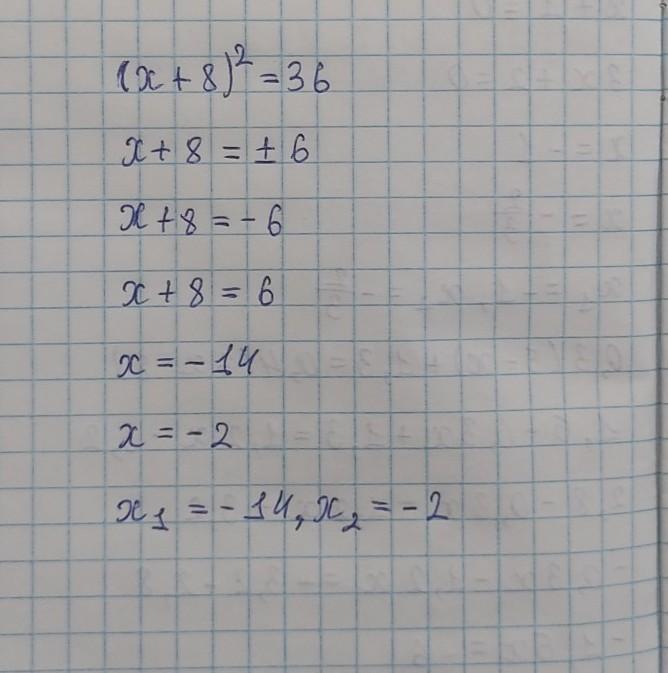 (x + 8)² = 36
x + 8 = ± 6
x + 8 = - 6
x + 8 = 6
x = - 14
x = - 2
x₁ = - 14, x₂ = - 2